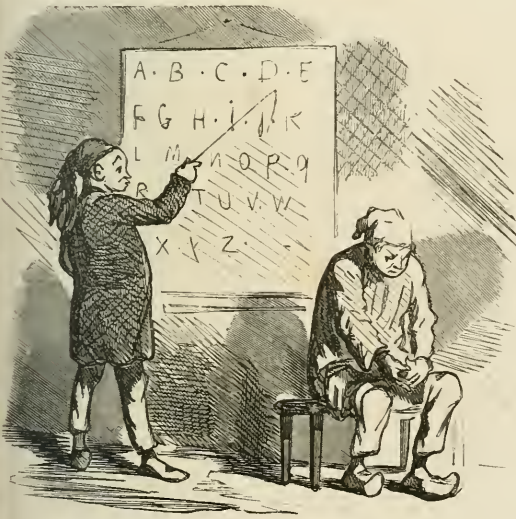 A · B · C · D · E
F G H · I J K
L M N O P q
R T U V · W
X y Z ·